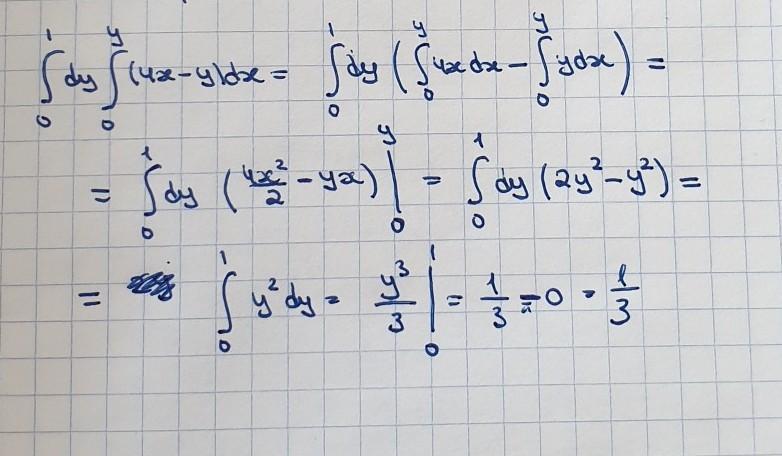 ∫₀¹ dy ∫₀ʸ (4x − y)dx = ∫₀¹ dy (∫₀ʸ 4x dx − ∫₀ʸ y dx) =
= ∫₀¹ dy (4x²/2 − yx) |₀ʸ = ∫₀¹ dy (2y² − y²) =
= ∫₀¹ y² dy = y³/3 |₀¹ = 1/3 − 0 = 1/3